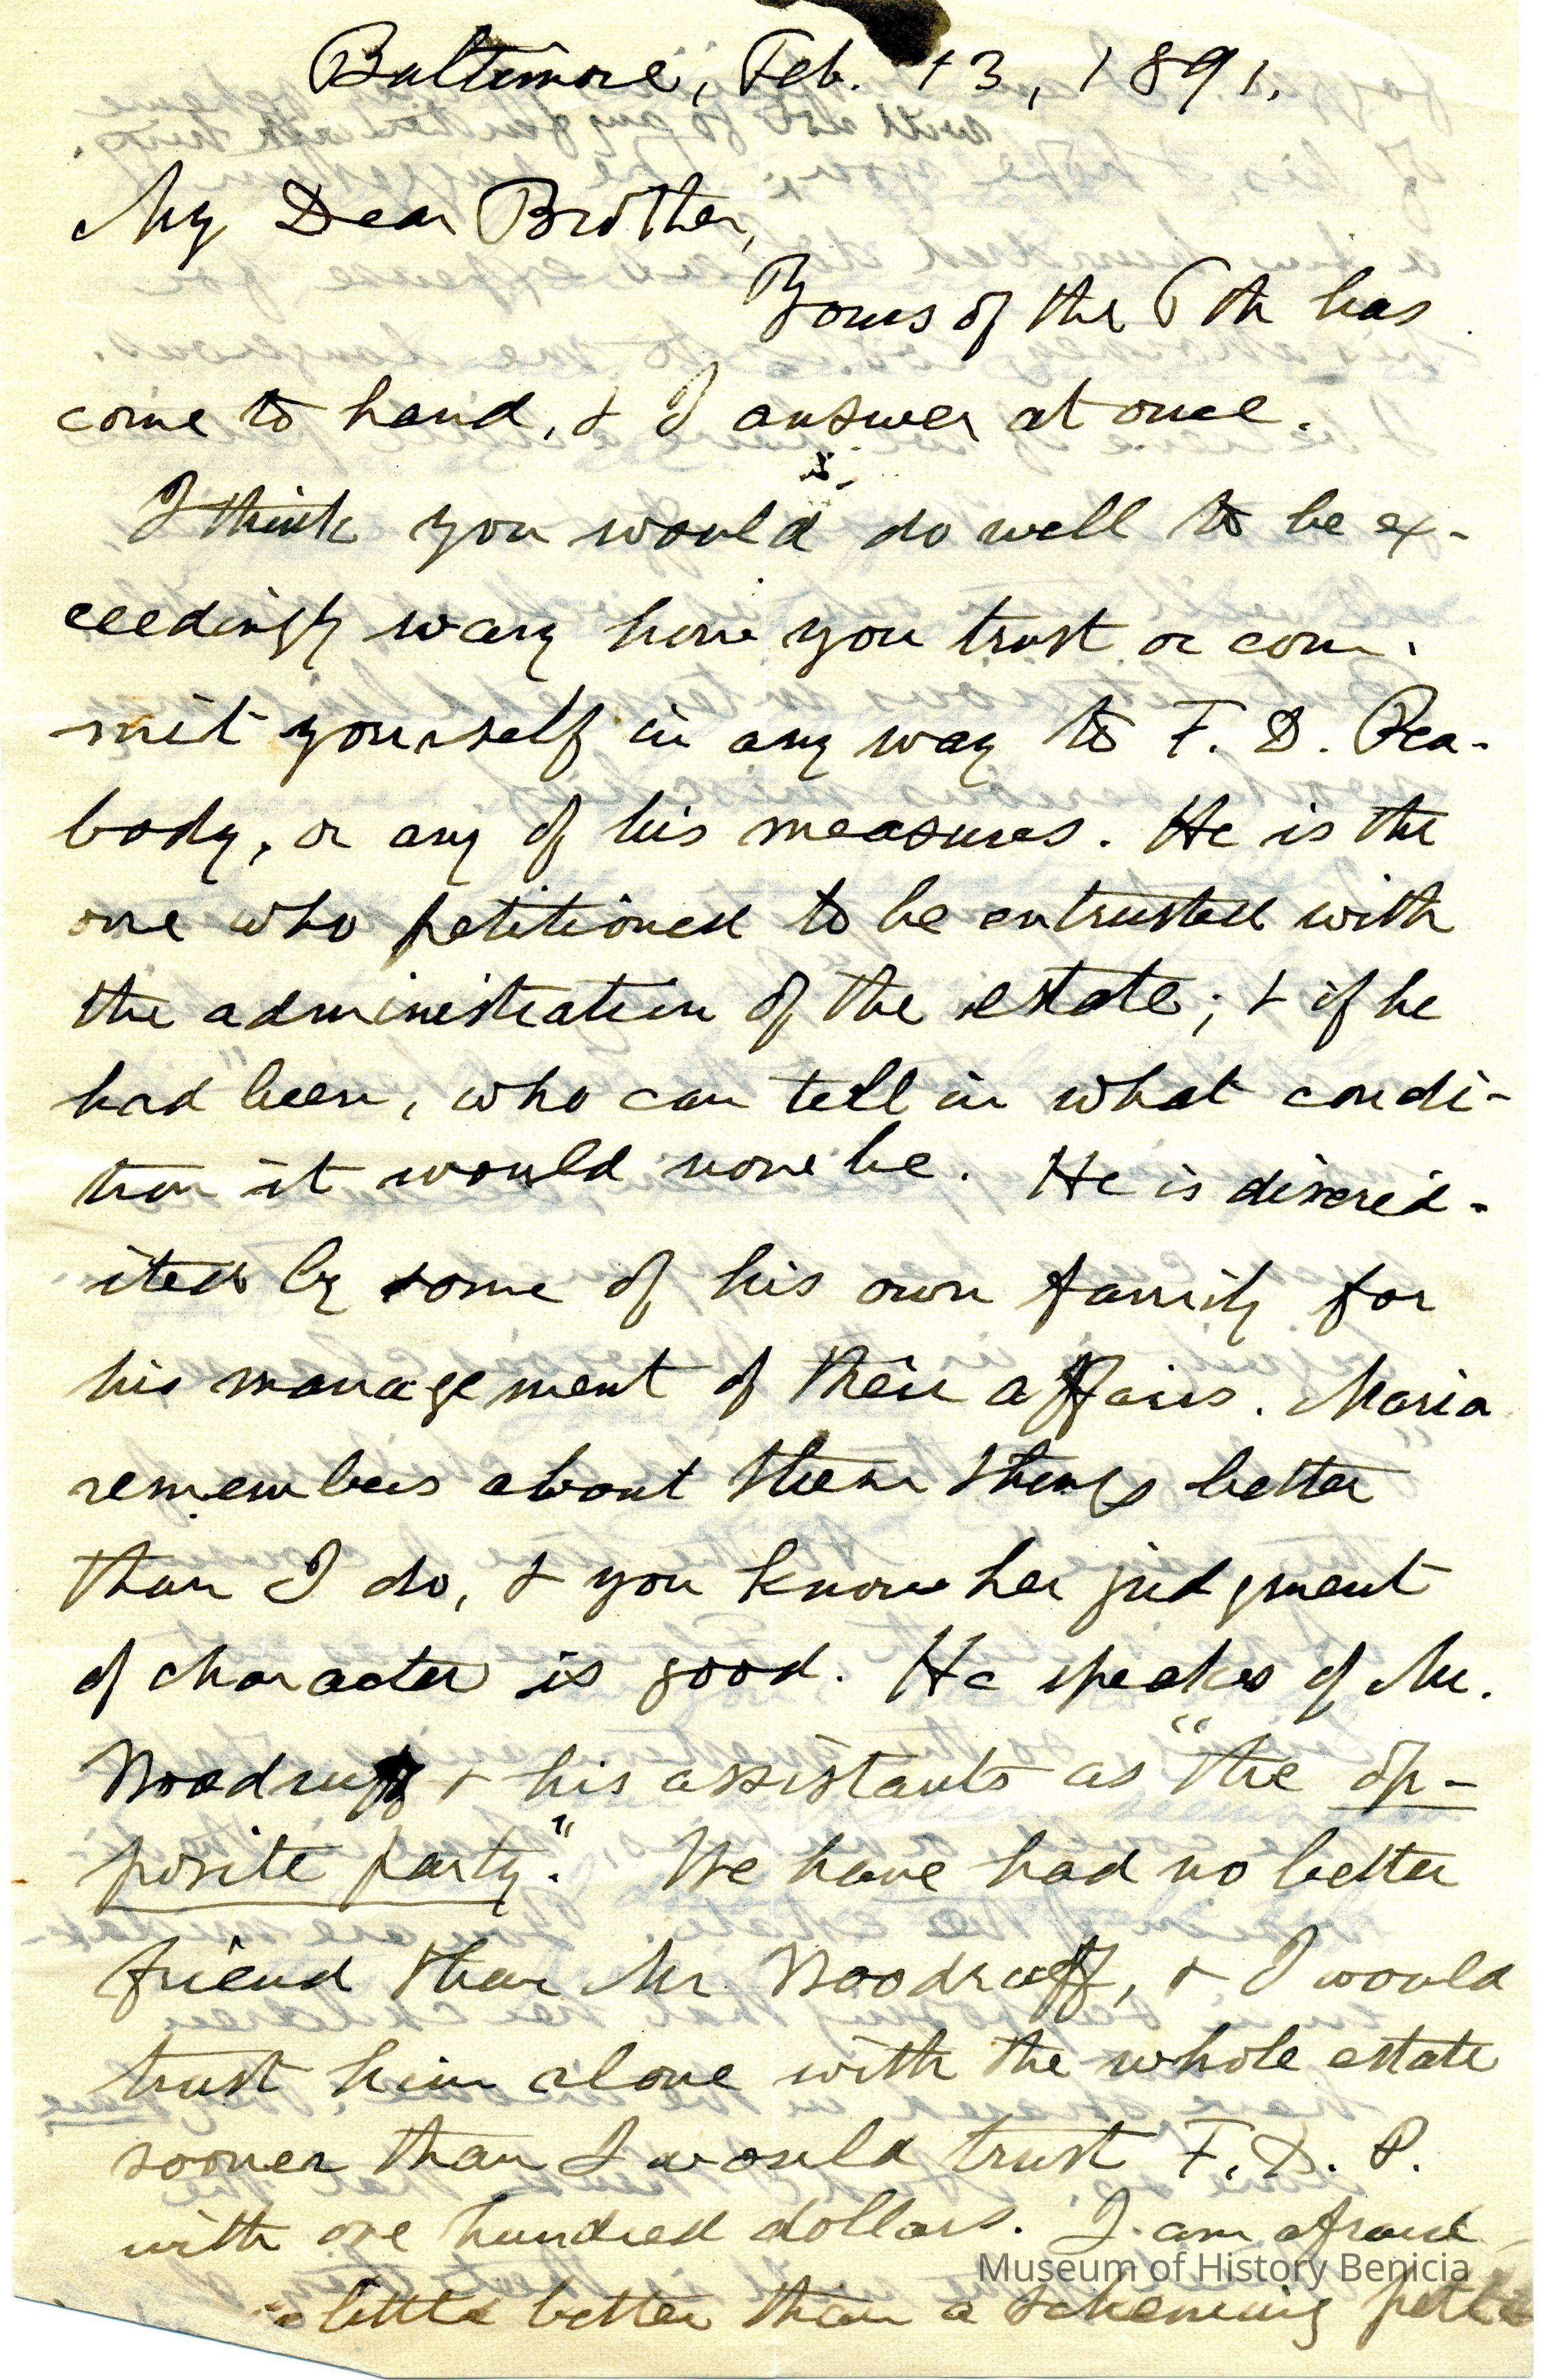 Baltimore, Feb. 13, 1891.
My Dear Brother,
Yours of the 6th has
come to hand, & I answer at once.
I think you would do well to be ex-
ceedingly wary how you trust or com-
mit yourself in any way to F. D. Pea-
body, or any of his measures. He is the
one who petitioned to be entrusted with
the administration of the estate; & if he
had been, who can tell in what condi-
tion it would now be. He is discred-
ited by some of his own family for
his management of their affairs. Maria
remembers about them things better
than I do, & you know her judgment
of character is good. He speaks of Mr.
Woodruff & his assistants as "the op-
posite party." We have had no better
friend than Mr Woodruff, & I would
trust him alone with the whole estate
sooner than I would trust F. D. P.
with one hundred dollars. I am afraid
little better than a scheming
Museum of History Benicia